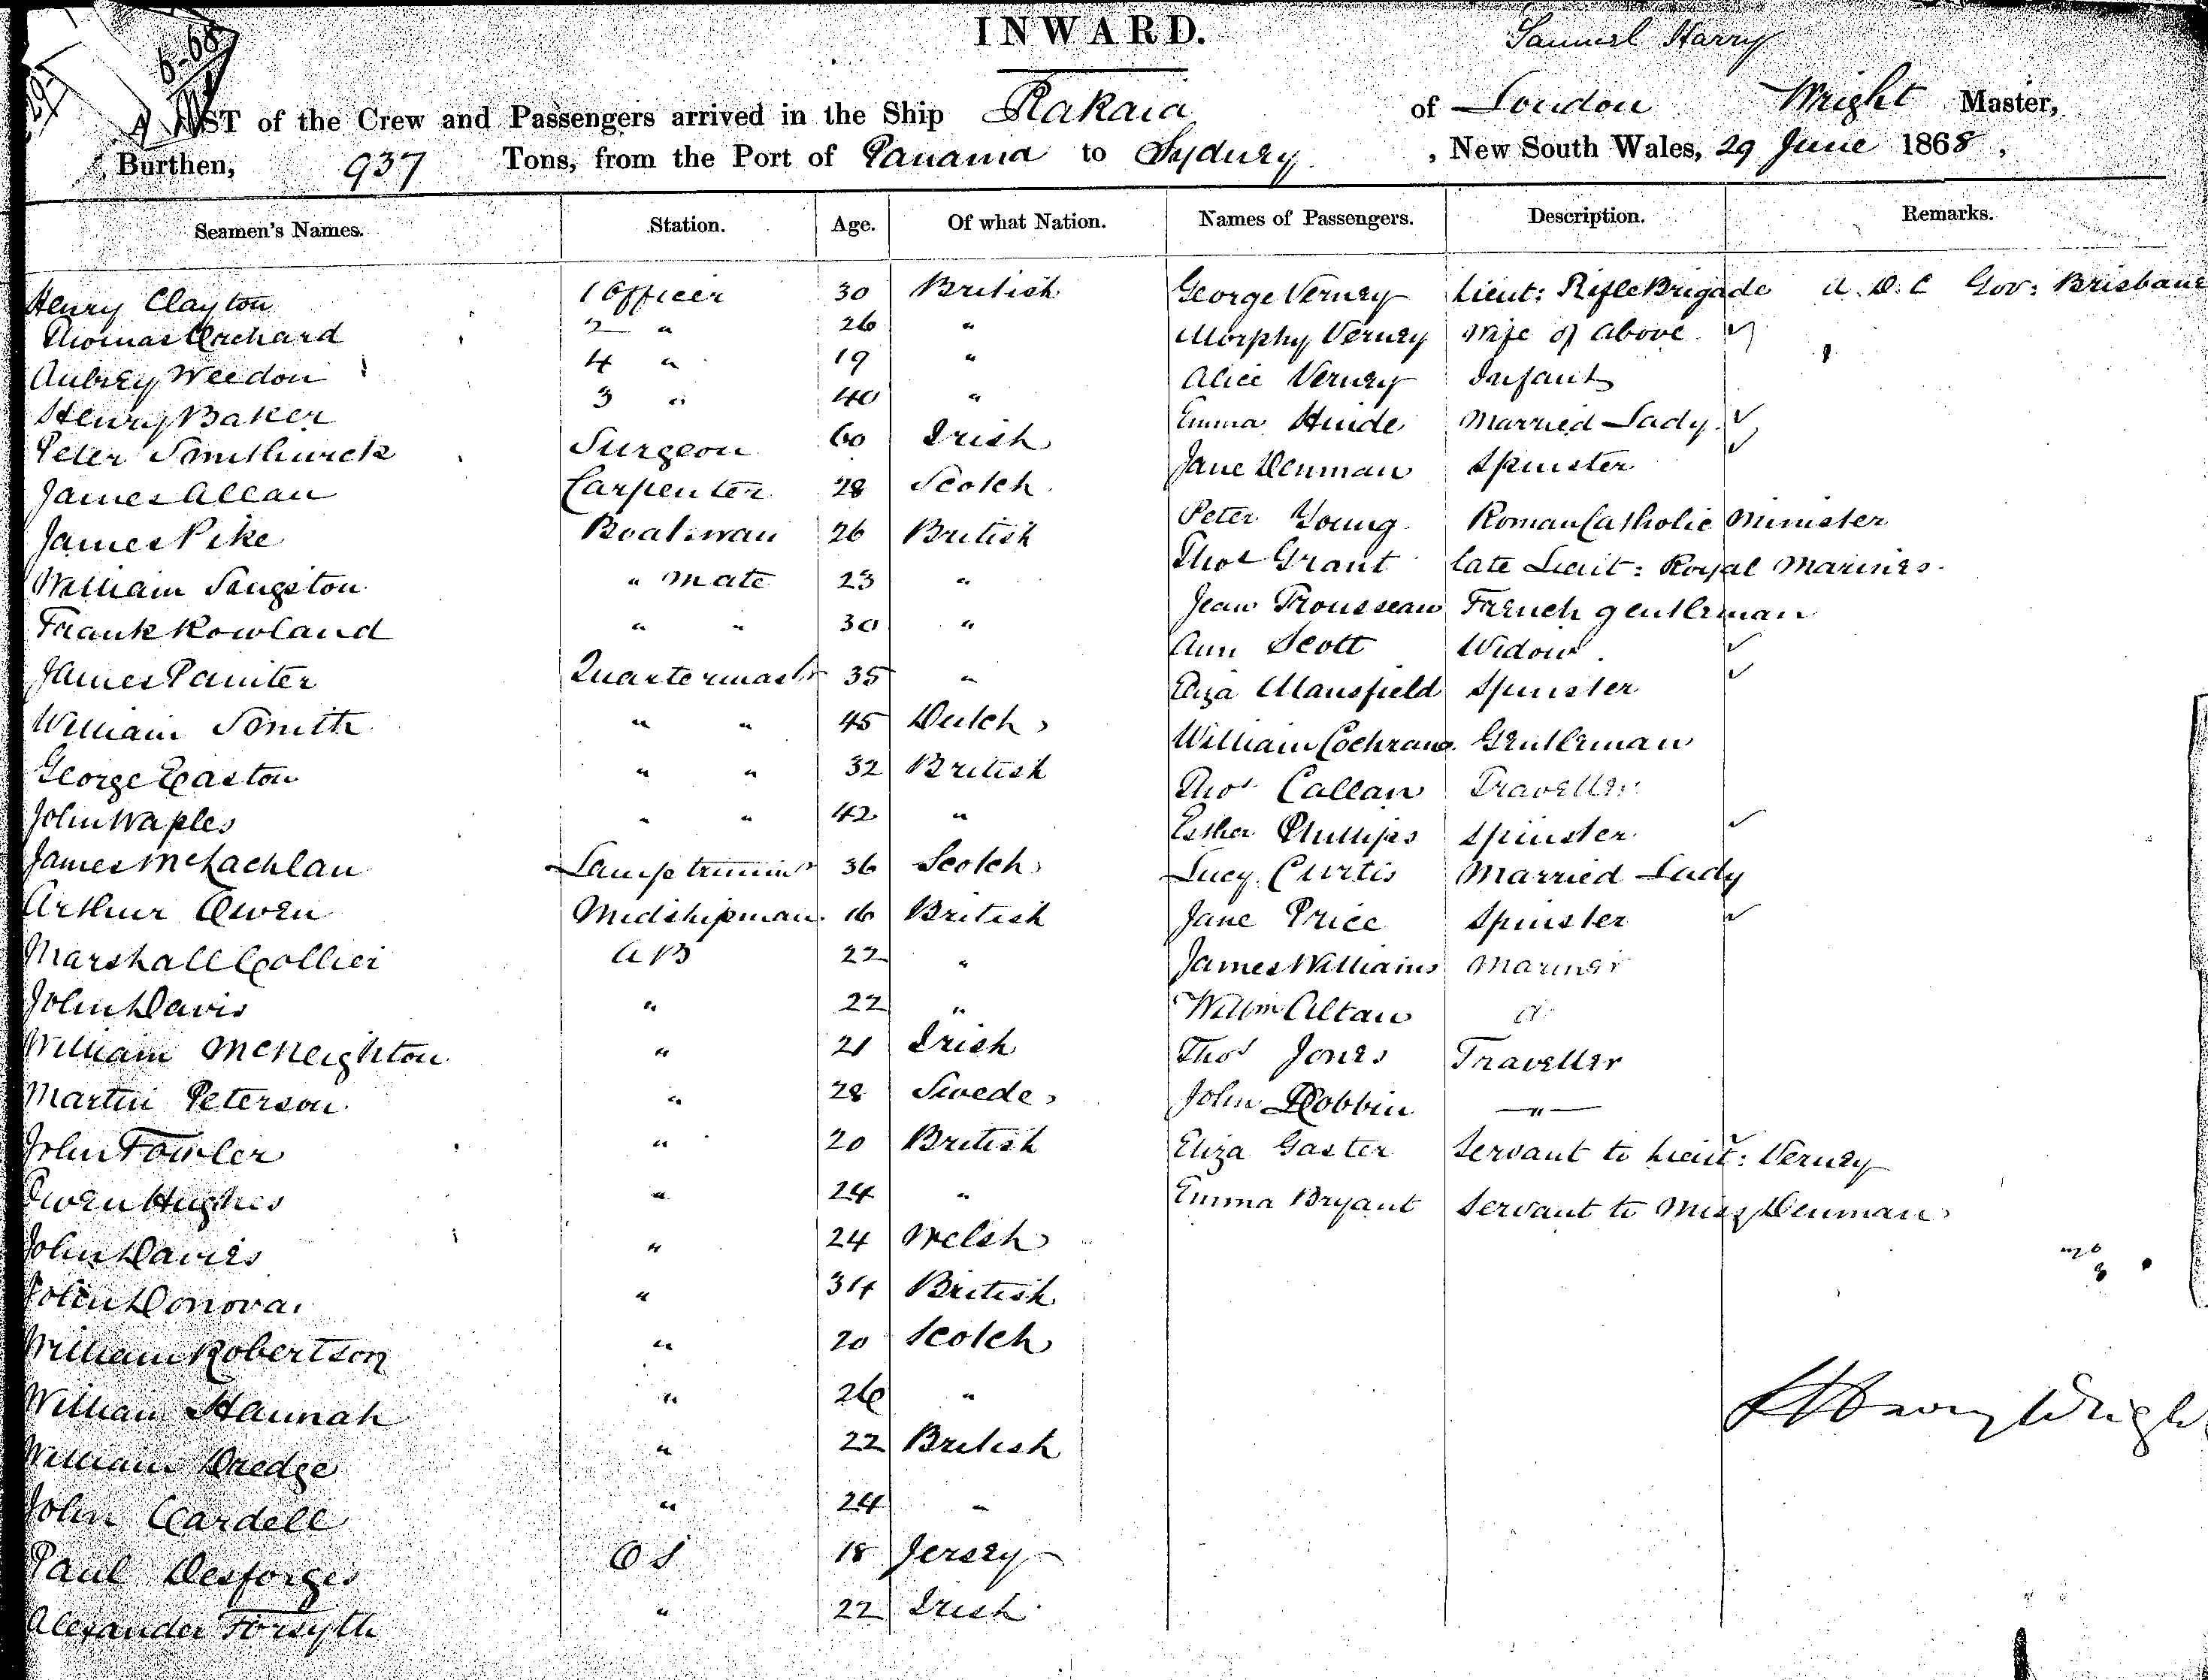 INWARD.
Samuel Harry
A LIST of the Crew and Passengers arrived in the Ship Rakaia of London Wright Master,
Burthen, 937 Tons, from the Port of Panama to Sydney, New South Wales, 29 June 1868,
Seamen's Names. Station. Age. Of what Nation. Names of Passengers. Description. Remarks.
Henry Clayton 1 Officer 30 British George Verney Lieut: Rifle Brigade A.D.C Gov: Brisbane
Thomas Orchard 2 " 26 " Morphy Verney Wife of above
Aubrey Weedon 4 " 19 " Alice Verney Infant
Henry Baker 3 " 40 " Emma Hinde Married Lady
Peter Smithwick Surgeon 60 Irish Jane Denman Spinster
James Allan Carpenter 28 Scotch Peter Young Roman Catholic Minister
James Pike Boatswan 26 British Thos Grant late Lieut: Royal Marines
William Sangston " Mate 23 " Jean Trousseau French gentleman
Frank Rowland " " 30 " Ann Scott Widow
James Painter Quartermastr 35 " Eliza Mansfield Spinster
William Smith " " 45 Dutch William Cochrane Gentleman
George Easton " " 32 British Thos Callan Traveller
John Waples " " 42 " Esther Phillips Spinster
James McLachlan Lamptrimmr 36 Scotch Lucy Curtis Married Lady
Arthur Owen Midshipman 16 British Jane Price Spinster
Marshall Collier AB 22 " James Williams Mariner
John Davis " 22 " Willm Altan
William McNeighton " 21 Irish Thos Jones Traveller
Martin Peterson " 28 Swede John Dobbin "
John Fowler " 20 British Eliza Gaster Servant to Lieut: Verney
Owen Hughes " 24 " Emma Bryant Servant to Miss Denman
John Davies " 24 Welsh
John Donovan " 34 British
William Robertson " 20 Scotch
William Hannah " 26 "
William Dredge " 22 British
John Cardell " 24 "
Paul Desforges OS 18 Jersey
Alexander Forsyth " 22 Irish
S Harry Wright